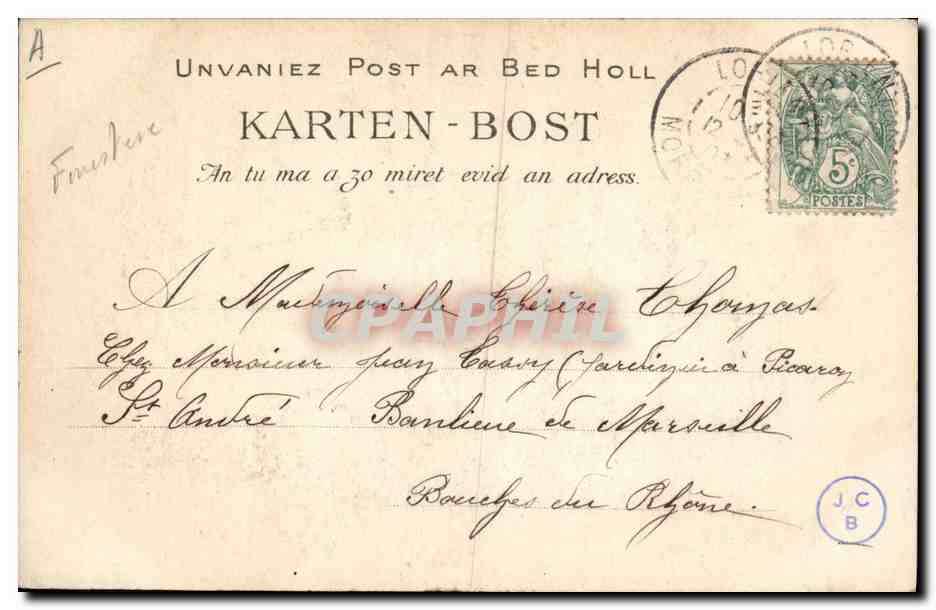 A
UNVANIEZ POST AR BED HOLL
KARTEN-BOST
An tu ma a zo miret evid an adress.
Finistère
5c
POSTES
A Mademoiselle Thérèse Thomas.
Chez Monsieur Jean Casoy (Jardinier à Picaron
St André Banlieue de Marseille
Bouches du Rhône.
CPAPHIL
J C
B